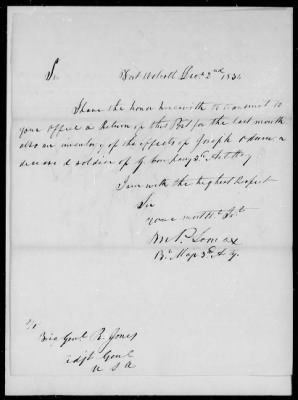 Sir
Fort Wolcott Decr 2nd 1834
I have the honor herewith to transmit to
your Office a Return of this Post for the last month
also an inventory of the effects of Joseph a
deceased soldier of G Company 3d Arty
I am with the highest Respect
Sir
your mo obt Svt
M P Lomax
Bt Majr 3d Arty
To
Brig Genl R. Jones
Adjt Genl
U S A